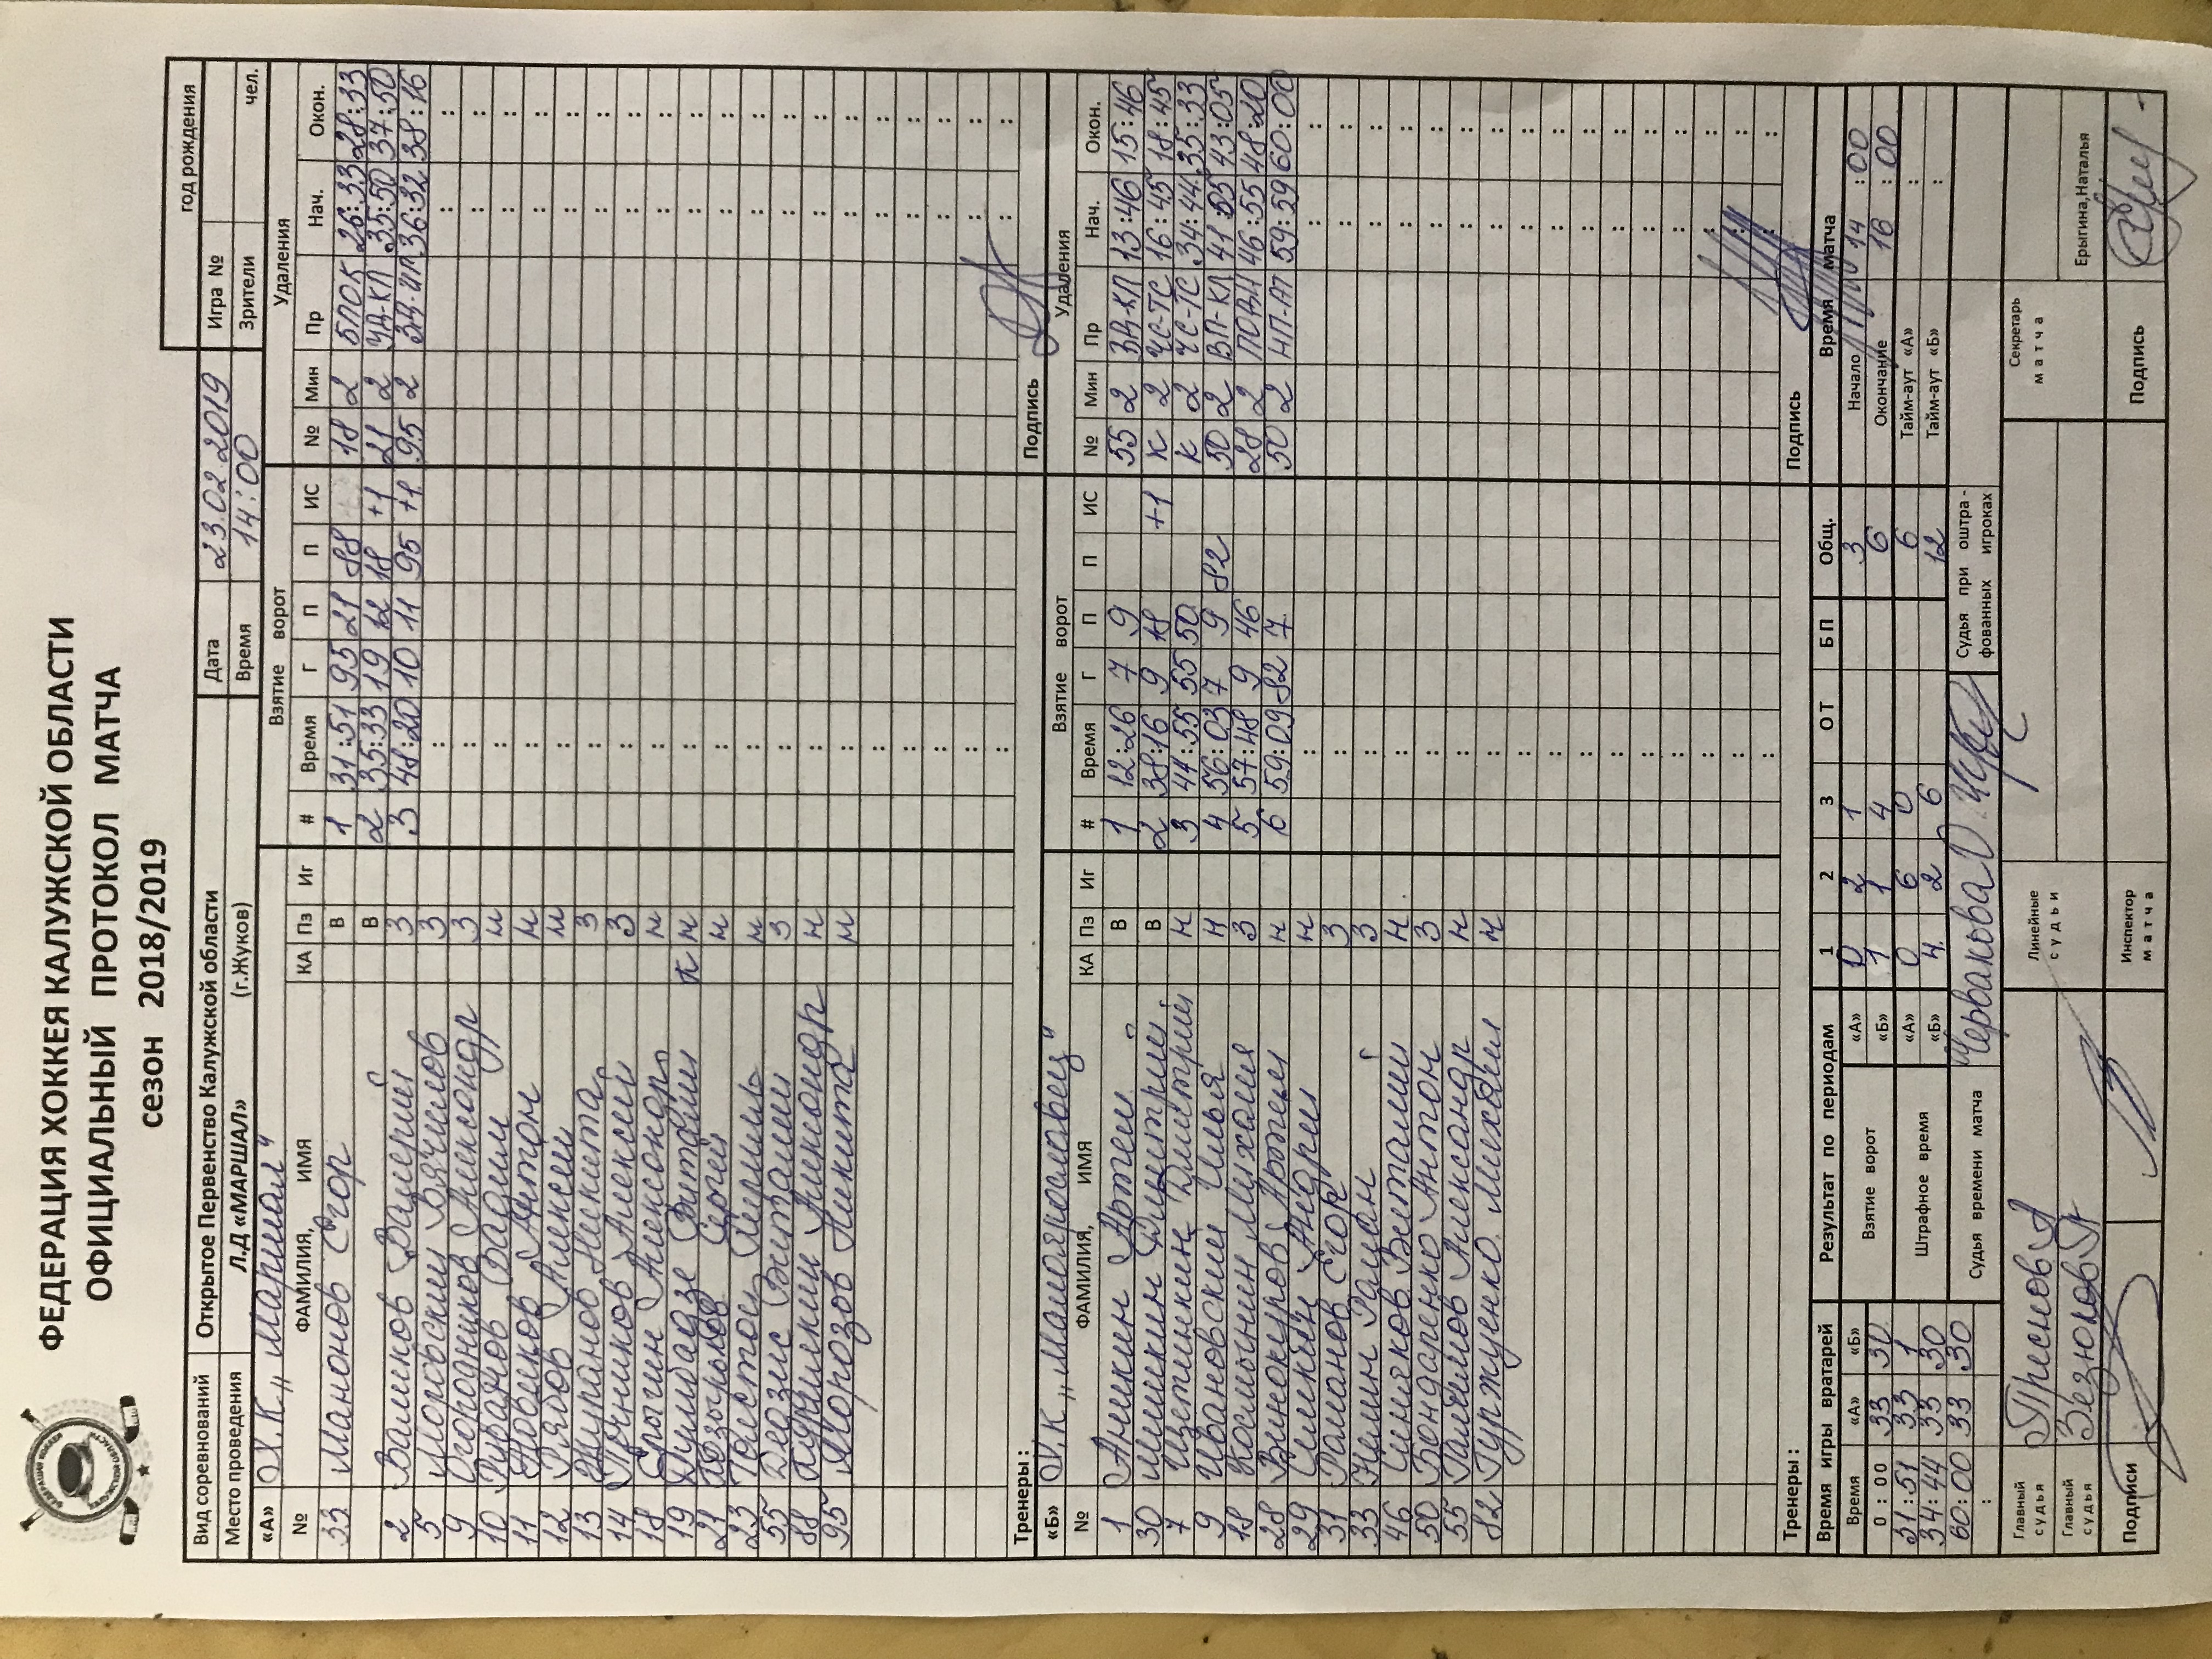 ФЕДЕРАЦИЯ ХОККЕЯ КАЛУЖСКОЙ ОБЛАСТИ
ОФИЦИАЛЬНЫЙ ПРОТОКОЛ МАТЧА
сезон 2018/2019
год рождения
Вид соревнований Открытое Первенство Калужской области Дата 23.02.2019 Игра №
Место проведения Л.Д «МАРШАЛ» (г.Жуков) Время 14:00 Зрители чел.
«А» Х.К „Маршал" Взятие ворот Удаления
№ ФАМИЛИЯ, ИМЯ КА Пз Иг # Время Г П П ИС № Мин Пр Нач. Окон.
33 Манонов Егор В 1 31:51 95 21 88 18 2 БЛОК 26:33 28:33
В 2 35:33 19 12 18 +1 21 2 УД-КЛ 35:50 37:50
2 Валиков Валерий З 3 48:20 10 11 95 +1 95 2 36:32 38:16
5 З
9 Огородников Александр З
10 Туранов Вадим Н
11 Антон Н
12 Рябов Алексей Н
13 Журанов Никита З
14 Печников Алексей З
18 Ерогин Александр Н
19 Думбадзе Виталий К Н
21 Сергей Н
23 Толстой Н
55 Деазис Виталий З
88 Александр Н
95 Морозов Никита Н
Тренеры: Подпись
«Б» Х.К „Малоярославец" Взятие ворот Удаления
№ ФАМИЛИЯ, ИМЯ КА Пз Иг # Время Г П П ИС № Мин Пр Нач. Окон.
1 Аникин Артем В 1 12:26 7 9 55 2 13:46 15:46
30 Мишкин Дмитрий В 2 38:16 9 18 +1 К 2 ЧС-ТС 16:45 18:45
7 Щетинкин Дмитрий Н 3 44:55 55 50 К 2 ЧС-ТС 34:44 35:33
9 Ивановский Илья Н 4 56:03 7 9 82 50 2 ВП-КЛ 41:55 43:05
18 Космынин Михаил З 5 57:48 9 46 28 2 46:55 48:20
28 Винокуров Артем Н 6 59:09 82 7 50 2 НП-АТ 59:59 60:00
29 Симкин Андрей Н
31 Романов Егор З
33 Немин Роман З
46 Симяков Виталий Н
50 Бондаренко Антон З
55 Александр Н
82 Гуржуенко Михаил Н
Тренеры: Подпись
Время игры вратарей Результат по периодам 1 2 3 ОТ БП Общ. Время матча
Время «А» «Б» Взятие ворот «А» 0 2 1 3 Начало 14:00
0:00 33 30 «Б» 1 1 4 6 Окончание 16:00
31:51 33 1 Штрафное время «А» 0 6 0 6 Тайм-аут «А» :
34:44 33 30 «Б» 4 2 6 12 Тайм-аут «Б» :
60:00 33 30 Судья времени матча Червакова Судья при оштрафованных игроках
Главный судья Преснов А Линейные судьи Секретарь матча
Главный судья Безюлов Ерыгина,Наталья
Подписи Инспектор матча Подпись